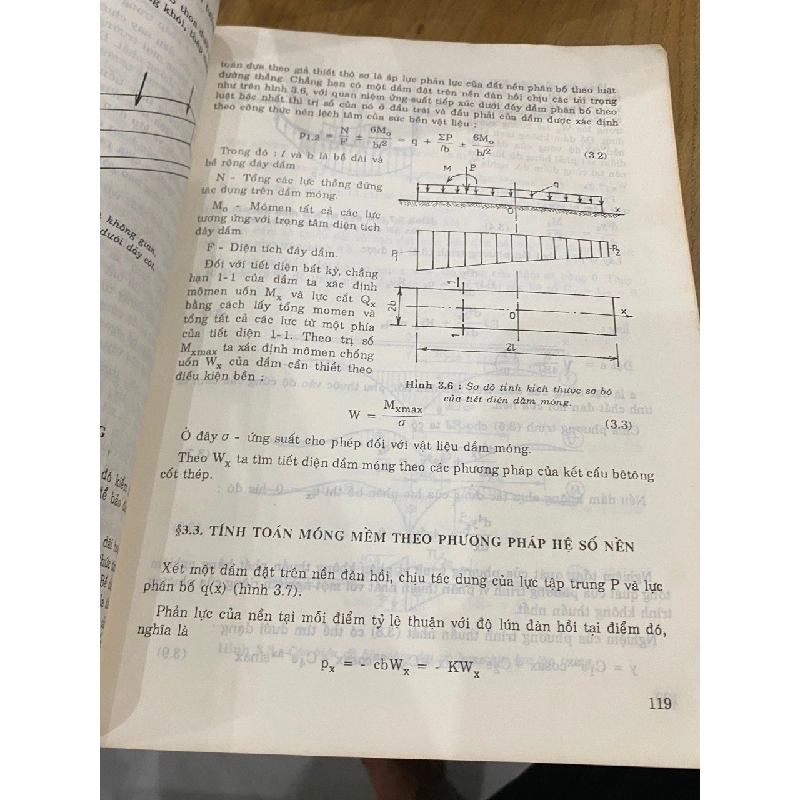 toán dựa theo giả thiết thô sơ là áp lực phản lực của đất nền phân bố theo luật
đường thẳng. Chẳng hạn có một dầm đặt trên nền đàn hồi chịu các tải trọng
như trên hình 3.6, với quan niệm ứng suất tiếp xúc dưới đáy dầm phân bố theo
luật bậc nhất thì trị số của nó ở đầu trái và đầu phải của dầm được xác định
theo công thức nén lệch tâm của sức bền vật liệu :
p1,2 = N/F ± 6Mo/bl² = q + ΣP/lb ± 6Mo/bl² (3.2)
Trong đó : l và b là bề dài và
bề rộng đáy dầm
N - Tổng các lực thẳng đứng
tác dụng trên dầm móng.
Mo - Mômen tất cả các lực
tương ứng với trọng tâm diện tích
đáy dầm
F - Diện tích đáy dầm.
Đối với tiết diện bất kỳ, chẳng
hạn 1-1 của dầm ta xác định
mômen uốn Mx và lực cắt Qx
bằng cách lấy tổng momen và
tổng tất cả các lực từ một phía
của tiết diện 1-1. Theo trị số
Mxmax ta xác định mômen chống
uốn Wx của dầm cần thiết theo
điều kiện bền :
M P q
O x
P1 P2
1
2b O x
1
2l
Hình 3.6 : Sơ đồ tính kích thước sơ bộ
của tiết diện dầm móng.
W = Mxmax/σ (3.3)
Ở đây σ - ứng suất cho phép đối với vật liệu dầm móng.
Theo Wx ta tìm tiết diện dầm móng theo các phương pháp của kết cấu bêtông
cốt thép.
§3.3. TÍNH TOÁN MÓNG MỀM THEO PHƯƠNG PHÁP HỆ SỐ NỀN
Xét một dầm đặt trên nền đàn hồi, chịu tác dụng của lực tập trung P và lực
phân bố q(x) (hình 3.7).
Phản lực của nền tại mỗi điểm tỷ lệ thuận với độ lún đàn hồi tại điểm đó,
nghĩa là
px = - cbWx = - KWx
119